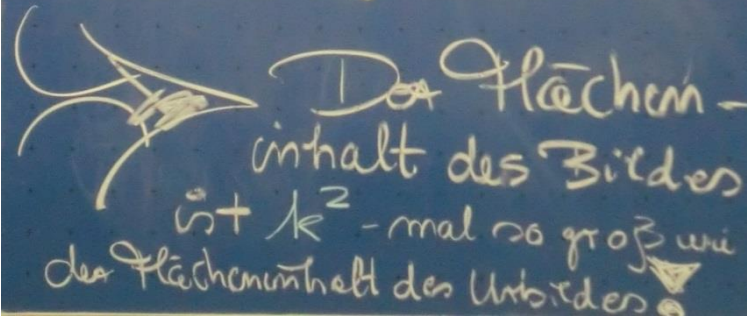 Der Flächen-
inhalt des Bildes
ist k² - mal so groß wie
der Flächeninhalt des Urbildes!